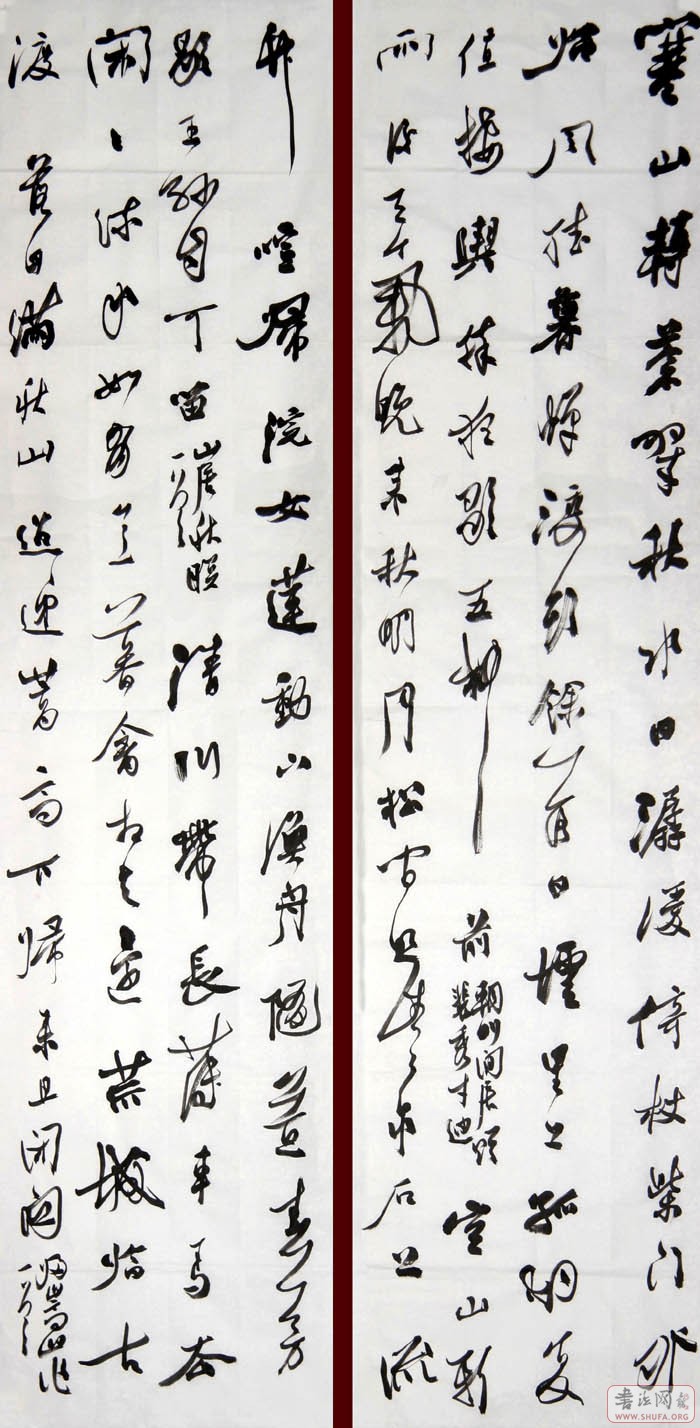 寒山轉蒼翠秋水日潺湲倚杖柴门外
临风聽暮蟬渡头馀落日墟里上孤烟复
值接輿醉狂歌五柳前輞川闲居贈裴秀才迪空山新
雨後天氣晚来秋明月松间照清泉石上流
竹喧歸浣女蓮動下漁舟随意春芳
歇王孙自可留山居秋暝一首清川帶長薄車马去
闲々流水如有意暮禽相与還荒城临古
渡落日满秋山迢递嵩高下歸来且闭関归嵩山作一首
書法网
WWW.SHUFA.ORG